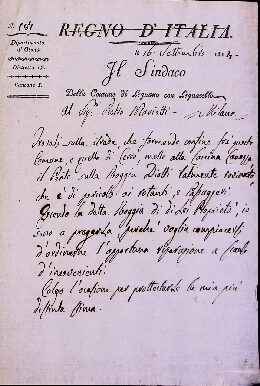 N. 141
REGNO D'ITALIA.
Dipartimento
d'Olona
Distretto IV.
Cantone
li 16 Settembre 1814
Il Sindaco
Della Comune di Legnano con Legnarello
Al Sig.r Pietro
Milano
sulla strada, che formando confine fra questo
Comune, e quello di mette alla Cascina
il Ponte sulla Roggia Diotti talmente rovinato
che è di pericolo ai rotanti, e passeggeri.
Essendo la detta Roggia di di Lei Proprietà, io
sono a pregarla perché voglia compiacersi
d'ordinarne l'opportuna riparazione a scanso
d'inconvenienti.
Colgo l'occasione per protestarle la mia più
distinta stima.